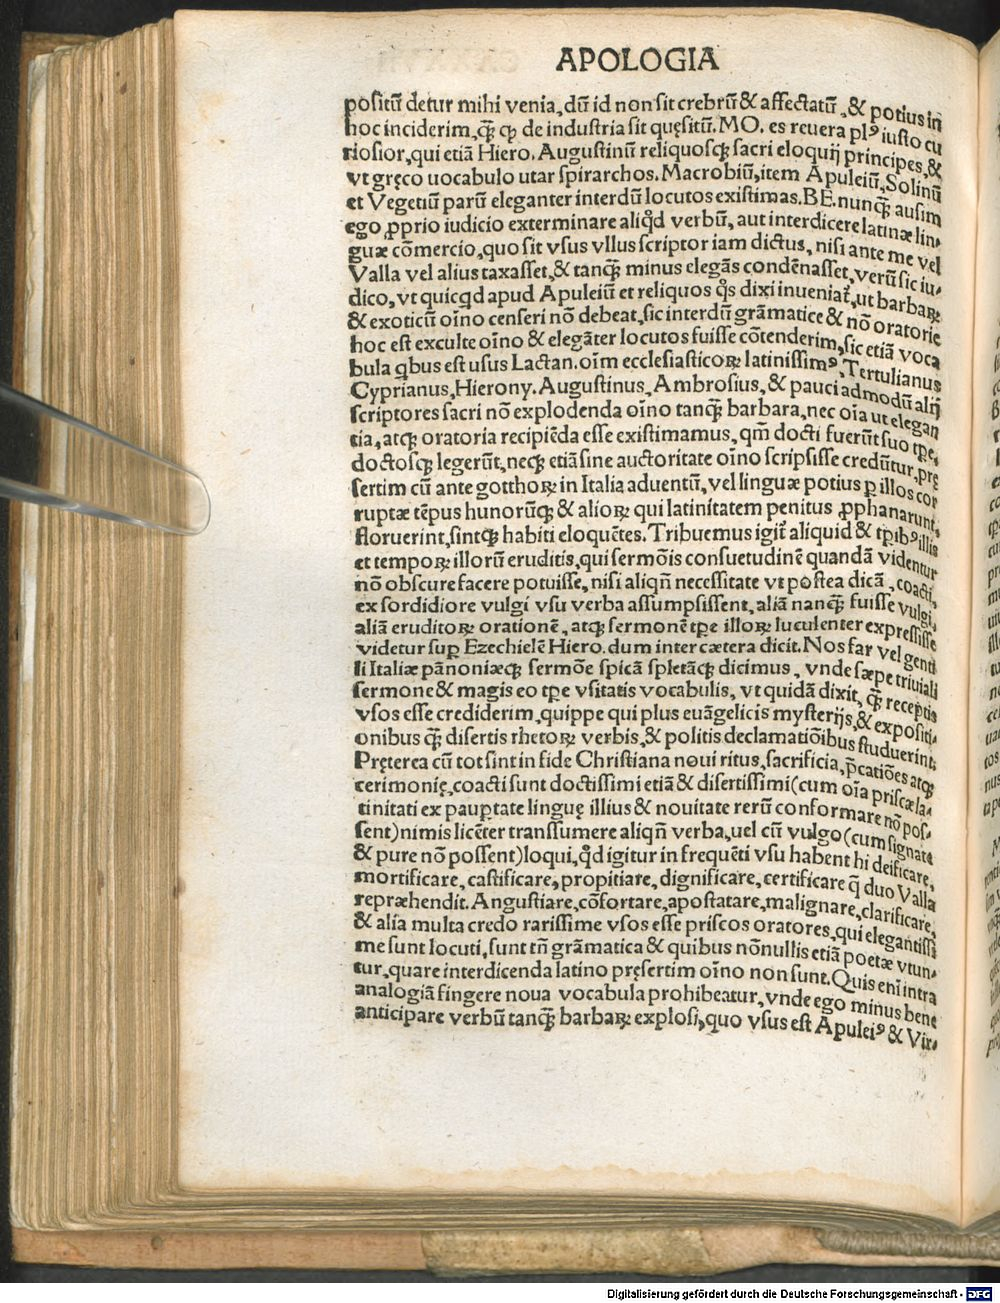 APOLOGIA
positū detur mihi venia, dū id non sit crebrū & affectatū, & potius in
hoc inciderim, q̄ꝫ ꝙ de industria sit quęsitū. MO. es reuera plꝰ iusto cu
riosior, qui etiā Hiero. Augustinū reliquosqꝫ sacri eloquij principes, &
vt gręco uocabulo utar spirarchos. Macrobiū, item Apuleiū, Solinū
et Vegetiū parū eleganter interdū locutos existimas. BE. nunq̄ꝫ ausim
ego ꝓprio iudicio exterminare aliqd verbū, aut interdicere latinæ lin⸗
guæ cōmercio, quo sit vsus vllus scriptor iam dictus, nisi ante me vel
Valla vel alius taxasset, & tanq̄ꝫ minus elegās condēnasset, verū sic iu⸗
dico, vt quicqd apud Apuleiū et reliquos qs dixi inueniat᷑, ut barbaꝝ
& exoticū oīno censeri nō debeat, sic interdū grāmatice & nō oratorie
hoc est exculte oīno & elegāter locutos fuisse cōtenderim, sic etiā voca
bula qbus est usus Lactan. oīm ecclesiasticoꝝ latinissimꝰ, Tertulianus
Cyprianus, Hierony. Augustinus, Ambrosius, & pauci admodū alij
scriptores sacri nō explodenda oīno tanq̄ꝫ barbara, nec oīa ut elegan
tia, atqꝫ oratoria recipiēda esse existimamus, qm̄ docti fuerūt suo tꝑe,
doctosqꝫ legerūt, neqꝫ etiā sine auctoritate oīno scripsisse credūtur, pre
sertim cū ante gotthoꝝ in Italia aduentū, vel linguæ potius ꝑ illos cor
ruptæ tēpus hunorūqꝫ & alioꝝ qui latinitatem penitus ꝓphanarunt,
floruerint, sintqꝫ habiti eloquētes. Tribuemus igit᷑ aliquid & tꝑibꝰ illis
et tempoꝝ illorū eruditis, qui sermōis consuetudinē quandā videntur
nō obscure facere potuisse, nisi aliqn̄ necessitate vt postea dicā, coacti,
ex sordidiore vulgi vsu verba assumpsissent, aliā nanqꝫ fuisse vulgi,
aliā eruditoꝝ orationē, atqꝫ sermonē tꝑe illoꝝ luculenter expressisse
videtur suꝑ Ezechielē Hiero. dum inter cætera dicit. Nos far vel genti
li Italiæ pānoniæqꝫ sermōe spicā spletāqꝫ dicimus, vnde sæpe triuiali
sermone & magis eo tꝑe vsitatis vocabulis, vt quidā dixit, q̄ꝫ receptis
vsos esse crediderim, quippe qui plus euāgelicis mysterijs, & expositi⸗
onibus q̄ꝫ disertis rhetoꝝ verbis, & politis declamatiōibus studuerint,
Pręterea cū tot sint in fide Christiana noui ritus, sacrificia, p̄catiōes atqꝫ
cerimonię, coacti sunt doctissimi etiā & disertissimi (cum oīa priscæ la⸗
tinitati ex pauꝑtate linguę illius & nouitate rerū conformare nō pos⸗
sent) nimis licēter transsumere aliqn̄ verba, uel cū vulgo (cum signate
& pure nō possent) loqui, qd igitur in frequēti vsu habent hi deificare,
mortificare, castificare, propitiare, dignificare, certificare q̄ duo Valla
repræhendit. Angustiare, cōfortare, apostatare, malignare, clarificare,
& alia multa credo rarissime vsos esse priscos oratores, qui elegantissi
me sunt locuti, sunt tn̄ grāmatica & quibus nōnullis etiā poetæ vtun⸗
tur, quare interdicenda latino pręsertim oīno non sunt. Quis enī intra
analogiā fingere noua vocabula prohibeatur, vnde ego minus bene
anticipare verbū tanq̄ꝫ barbaꝝ explosi, quo vsus est Apuleiꝰ & Vir⸗
Digitalisierung gefördert durch die Deutsche Forschungsgemeinschaft - DFG